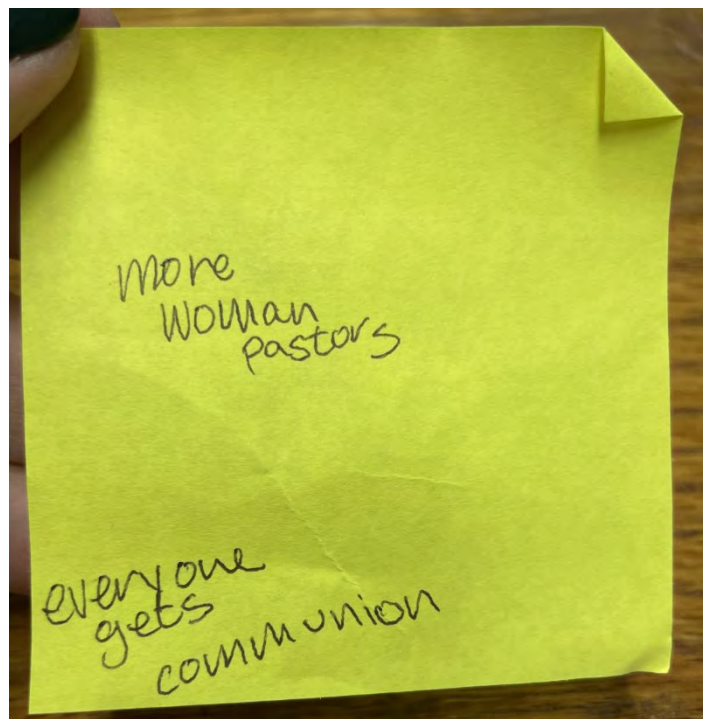 more
woman
pastors
everyone
gets
communion